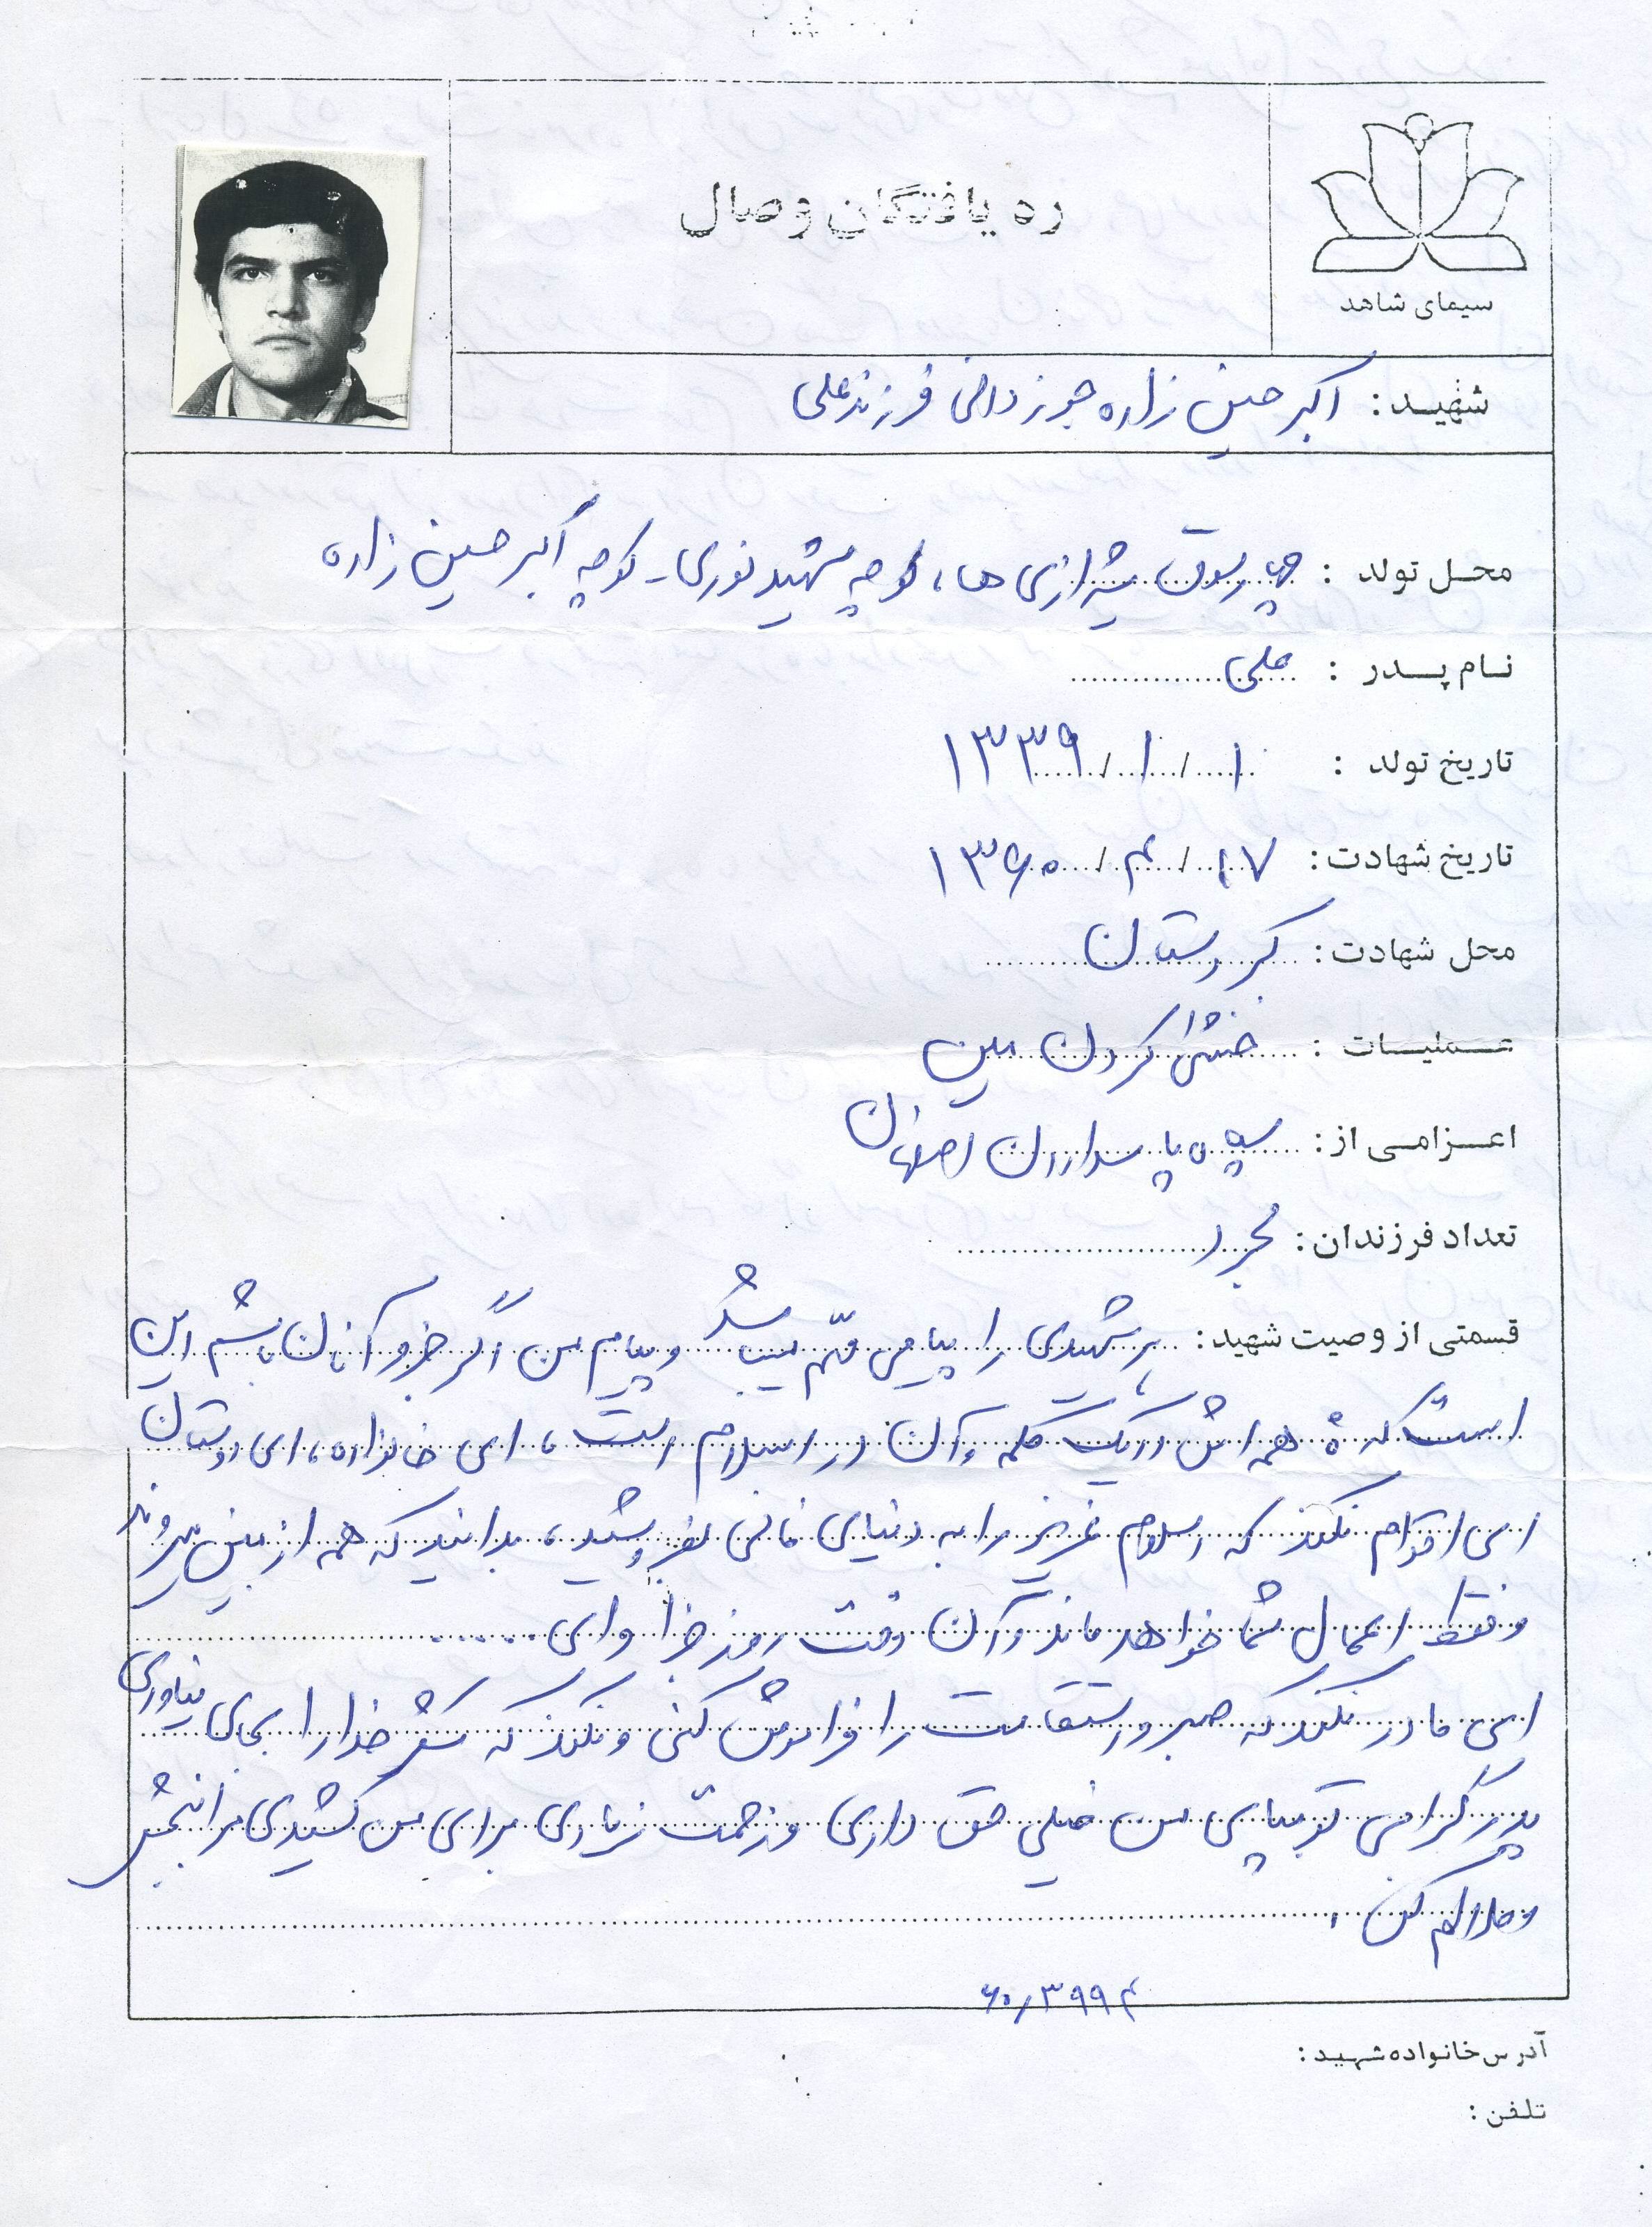 ره یافتگان وصال
سیمای شاهد
شهید: اکبر حسین زاده جوزدانی فرزند علی
محل تولد : چهارسوق شیرازی ها، کوچه شهید نوری - کوچه اکبر حسین زاده
نام پدر : علی
تاریخ تولد : ۱ / ۱ / ۱۳۳۹
تاریخ شهادت : ۱۷ / ۴ / ۱۳۶۰
محل شهادت : کردستان
عملیات : خنثی کردن مین
اعزامی از : سپاه پاسداران اصفهان
تعداد فرزندان : مجرد
قسمتی از وصیت شهید : هر شهیدی را پیامی میباشد و پیام من اگر جزو آنان باشم این
است که همه اش در یک کلمه و آن در اسلام است، ای خانواده، ای دوستان
ای اقوام نکند که اسلام عزیز را به دنیای فانی بفروشید، بدانید که همه از بین میروند
و فقط اعمال شما خواهد ماند و آن وقت روز جزا وای .....
ای مادر نکند که صبر و استقامت را فراموش کنی و نکند که شکر خدا را بجای نیاوری
پدر گرامی تو بپای من خیلی حق داری و زحمت زیادی برای من کشیدی مرا ببخش
و حلالم کن .
۶۰/۳۹۹۴
آدرس خانواده شهید :
تلفن :